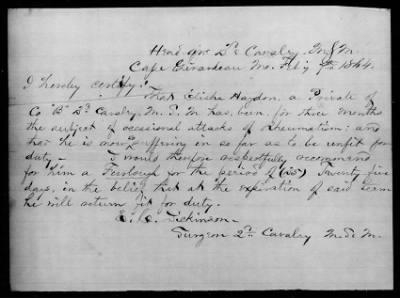 Head qrs 2d Cavalry, M.S.M.
Cape Girardeau Mo. Feby 7th 1864.
I hereby certify:
That Elisha Haydon, a Private of
Co "B" 2d Cavalry, M.S.M has been, for three months
the subject of occasional attacks of Rheumatism: and
that he is now suffering in so far as to be unfit for
duty — I would therefore respectfully recommend
for him a Furlough for the period of (25) Twenty five
days, in the belief that at the expiration of said term
he will return fit for duty.
Dickinson
Surgeon 2d Cavalry M.S.M.